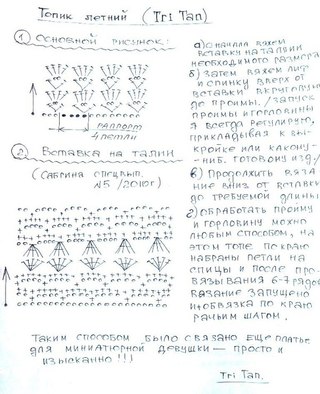 Топик летний (Tri Tan)
① Основной рисунок:
раппорт
4 петли
② Вставка на талии
(Сабрина спецвып.
N5 /2010г)
а) сначала вяжем
вставку на талии
необходимого размера
б) Затем вяжем лиф
и спинку вверх от
вставки вкруговую
до проймы. /запуск
проймы и горловины
я всегда регулирую,
прикладывая к вы-
кройке или какому-
ниб. готовому изд./
в) Продолжить вяза-
ние вниз от вставки
до требуемой длины
г) Обработать пройму
и горловину можно
любым способом, на
этом топе по краю
набраны петли на
спицы и после про-
вязывания 6-7 рядов
вязание запущено
и обвязка по краю
рачьим шагом.
Таким способом было связано еще платье
для миниатюрной девушки — просто и
изысканно !!!
Tri Tan.